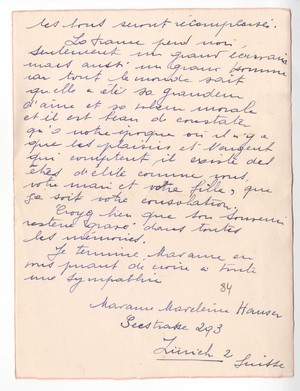 les tous seront récompensés.
La France perd non
seulement un grand écrivain
mais aussi un grand homme
car tout le monde sait
qu'elle a été sa grandeur
d'âme et sa valeur morale
et il est beau de constater
qu'à notre époque où il n'y a
que les plaisirs et l'argent
qui comptent il existe des
êtres d'élite comme vous
votre mari et votre fille, que
ça soit votre consolation.
Croyez bien que son souvenir
restera gravé dans toutes
les mémoires.
Je termine Madame en
vous priant de croire à toute
une sympathie
84
Madame Madeleine Hauser
Seestrasse 293
Zürich 2
Suisse